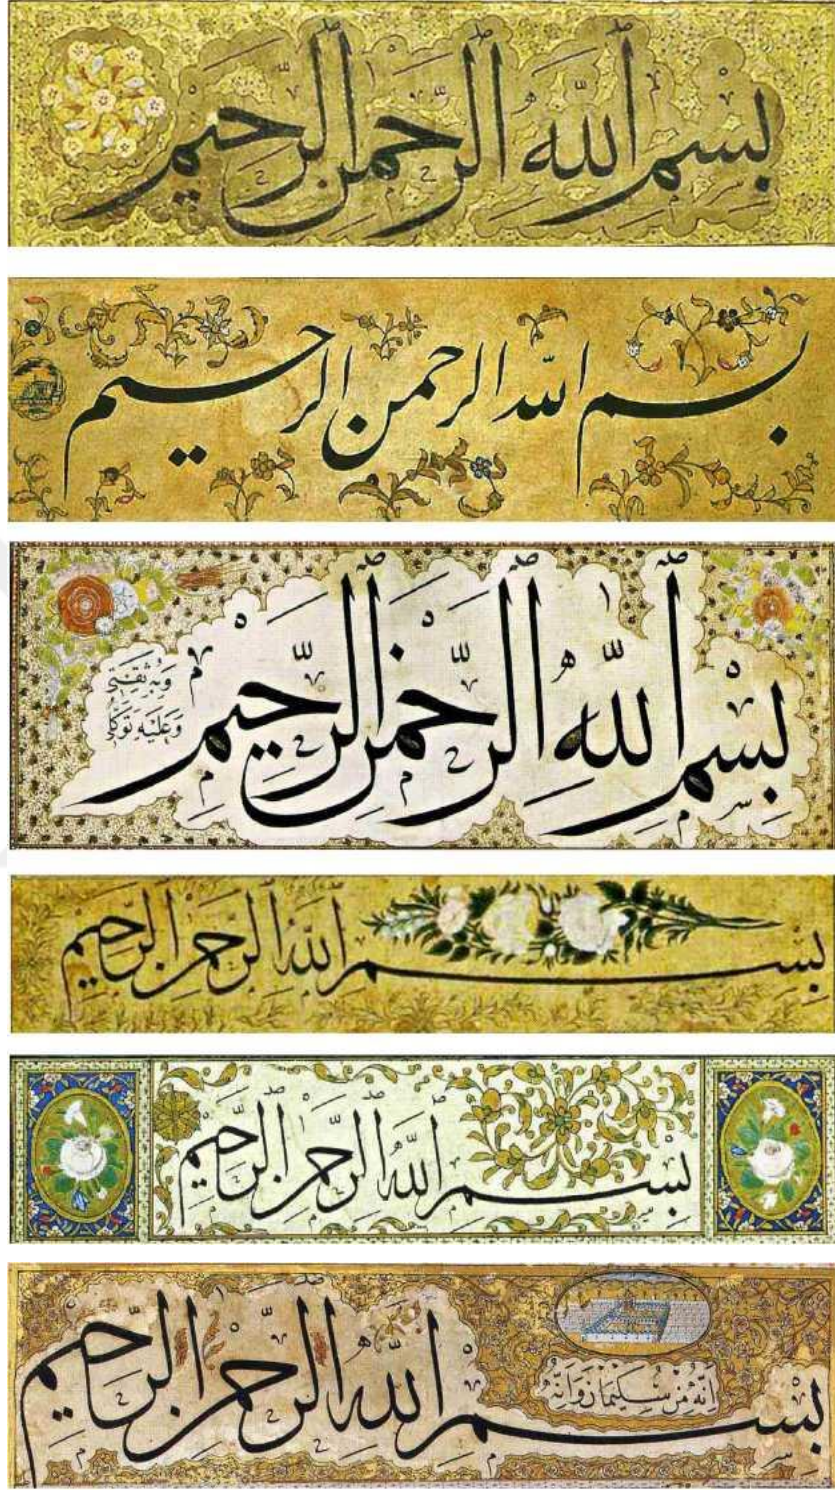 بِسْمِ اللّٰهِ الرَّحْمٰنِ الرَّحِيمِ
بسم الله الرحمن الرحيم
بِسْمِ اللّٰهِ الرَّحْمٰنِ الرَّحِيمِ
وَبِهِ ثِقَتِي
وَعَلَيْهِ تَوَكُّلِي
بسم الله الرحمن الرحيم
بِسْمِ اللّٰهِ الرَّحْمٰنِ الرَّحِيمِ
اِنَّهُ مِنْ سُلَيْمَانَ وَاِنَّهُ
بِسْمِ اللّٰهِ الرَّحْمٰنِ الرَّحِيمِ